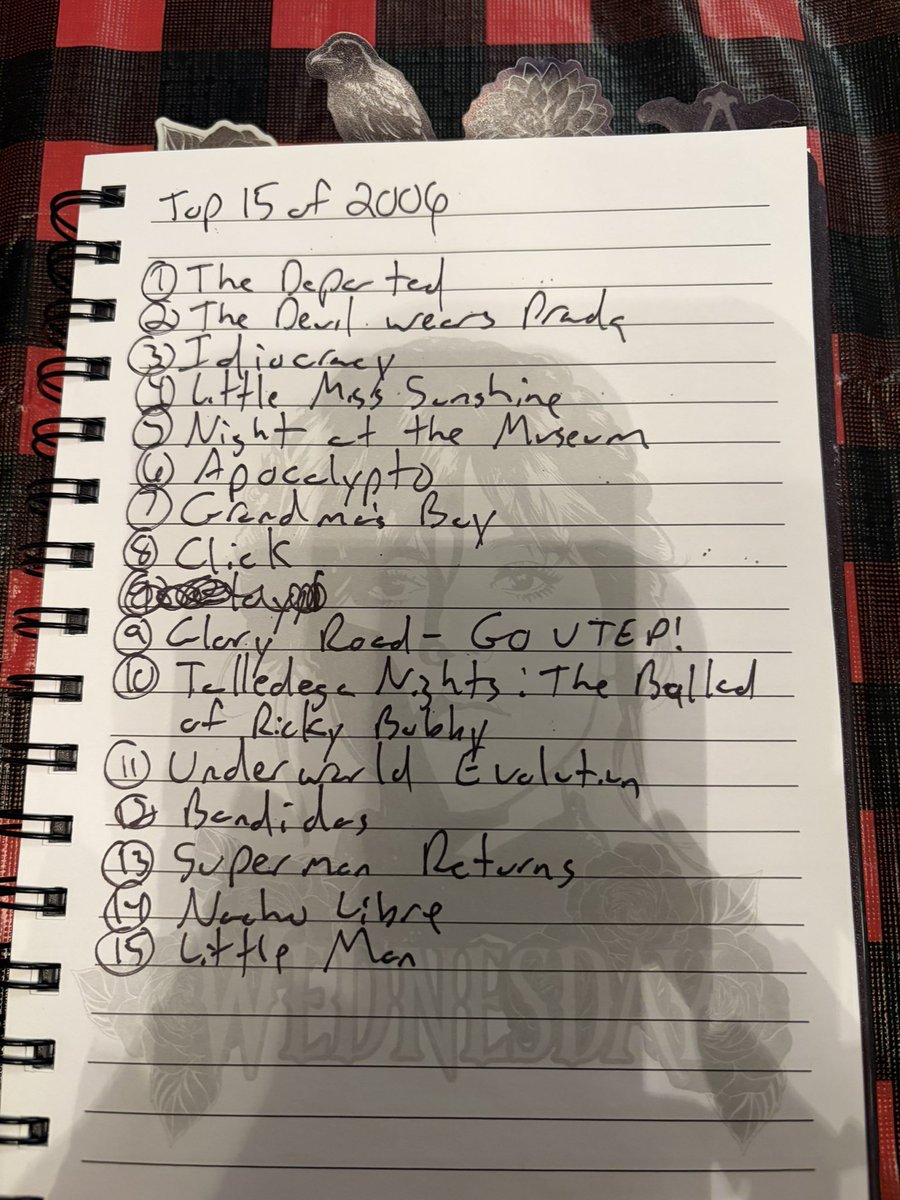 Top 15 of 2006
① The Departed
② The Devil wears Prada
③ Idiocracy
④ Little Miss Sunshine
⑤ Night at the Museum
⑥ Apocalypto
⑦ Grandma's Boy
⑧ Click
⑨ Glory Road - GO UTEP!
⑩ Talledega Nights: The Ballad
of Ricky Bobby
⑪ Underworld Evolution
⑫ Bandidas
⑬ Superman Returns
⑭ Nacho Libre
⑮ Little Man
WEDNESDAY